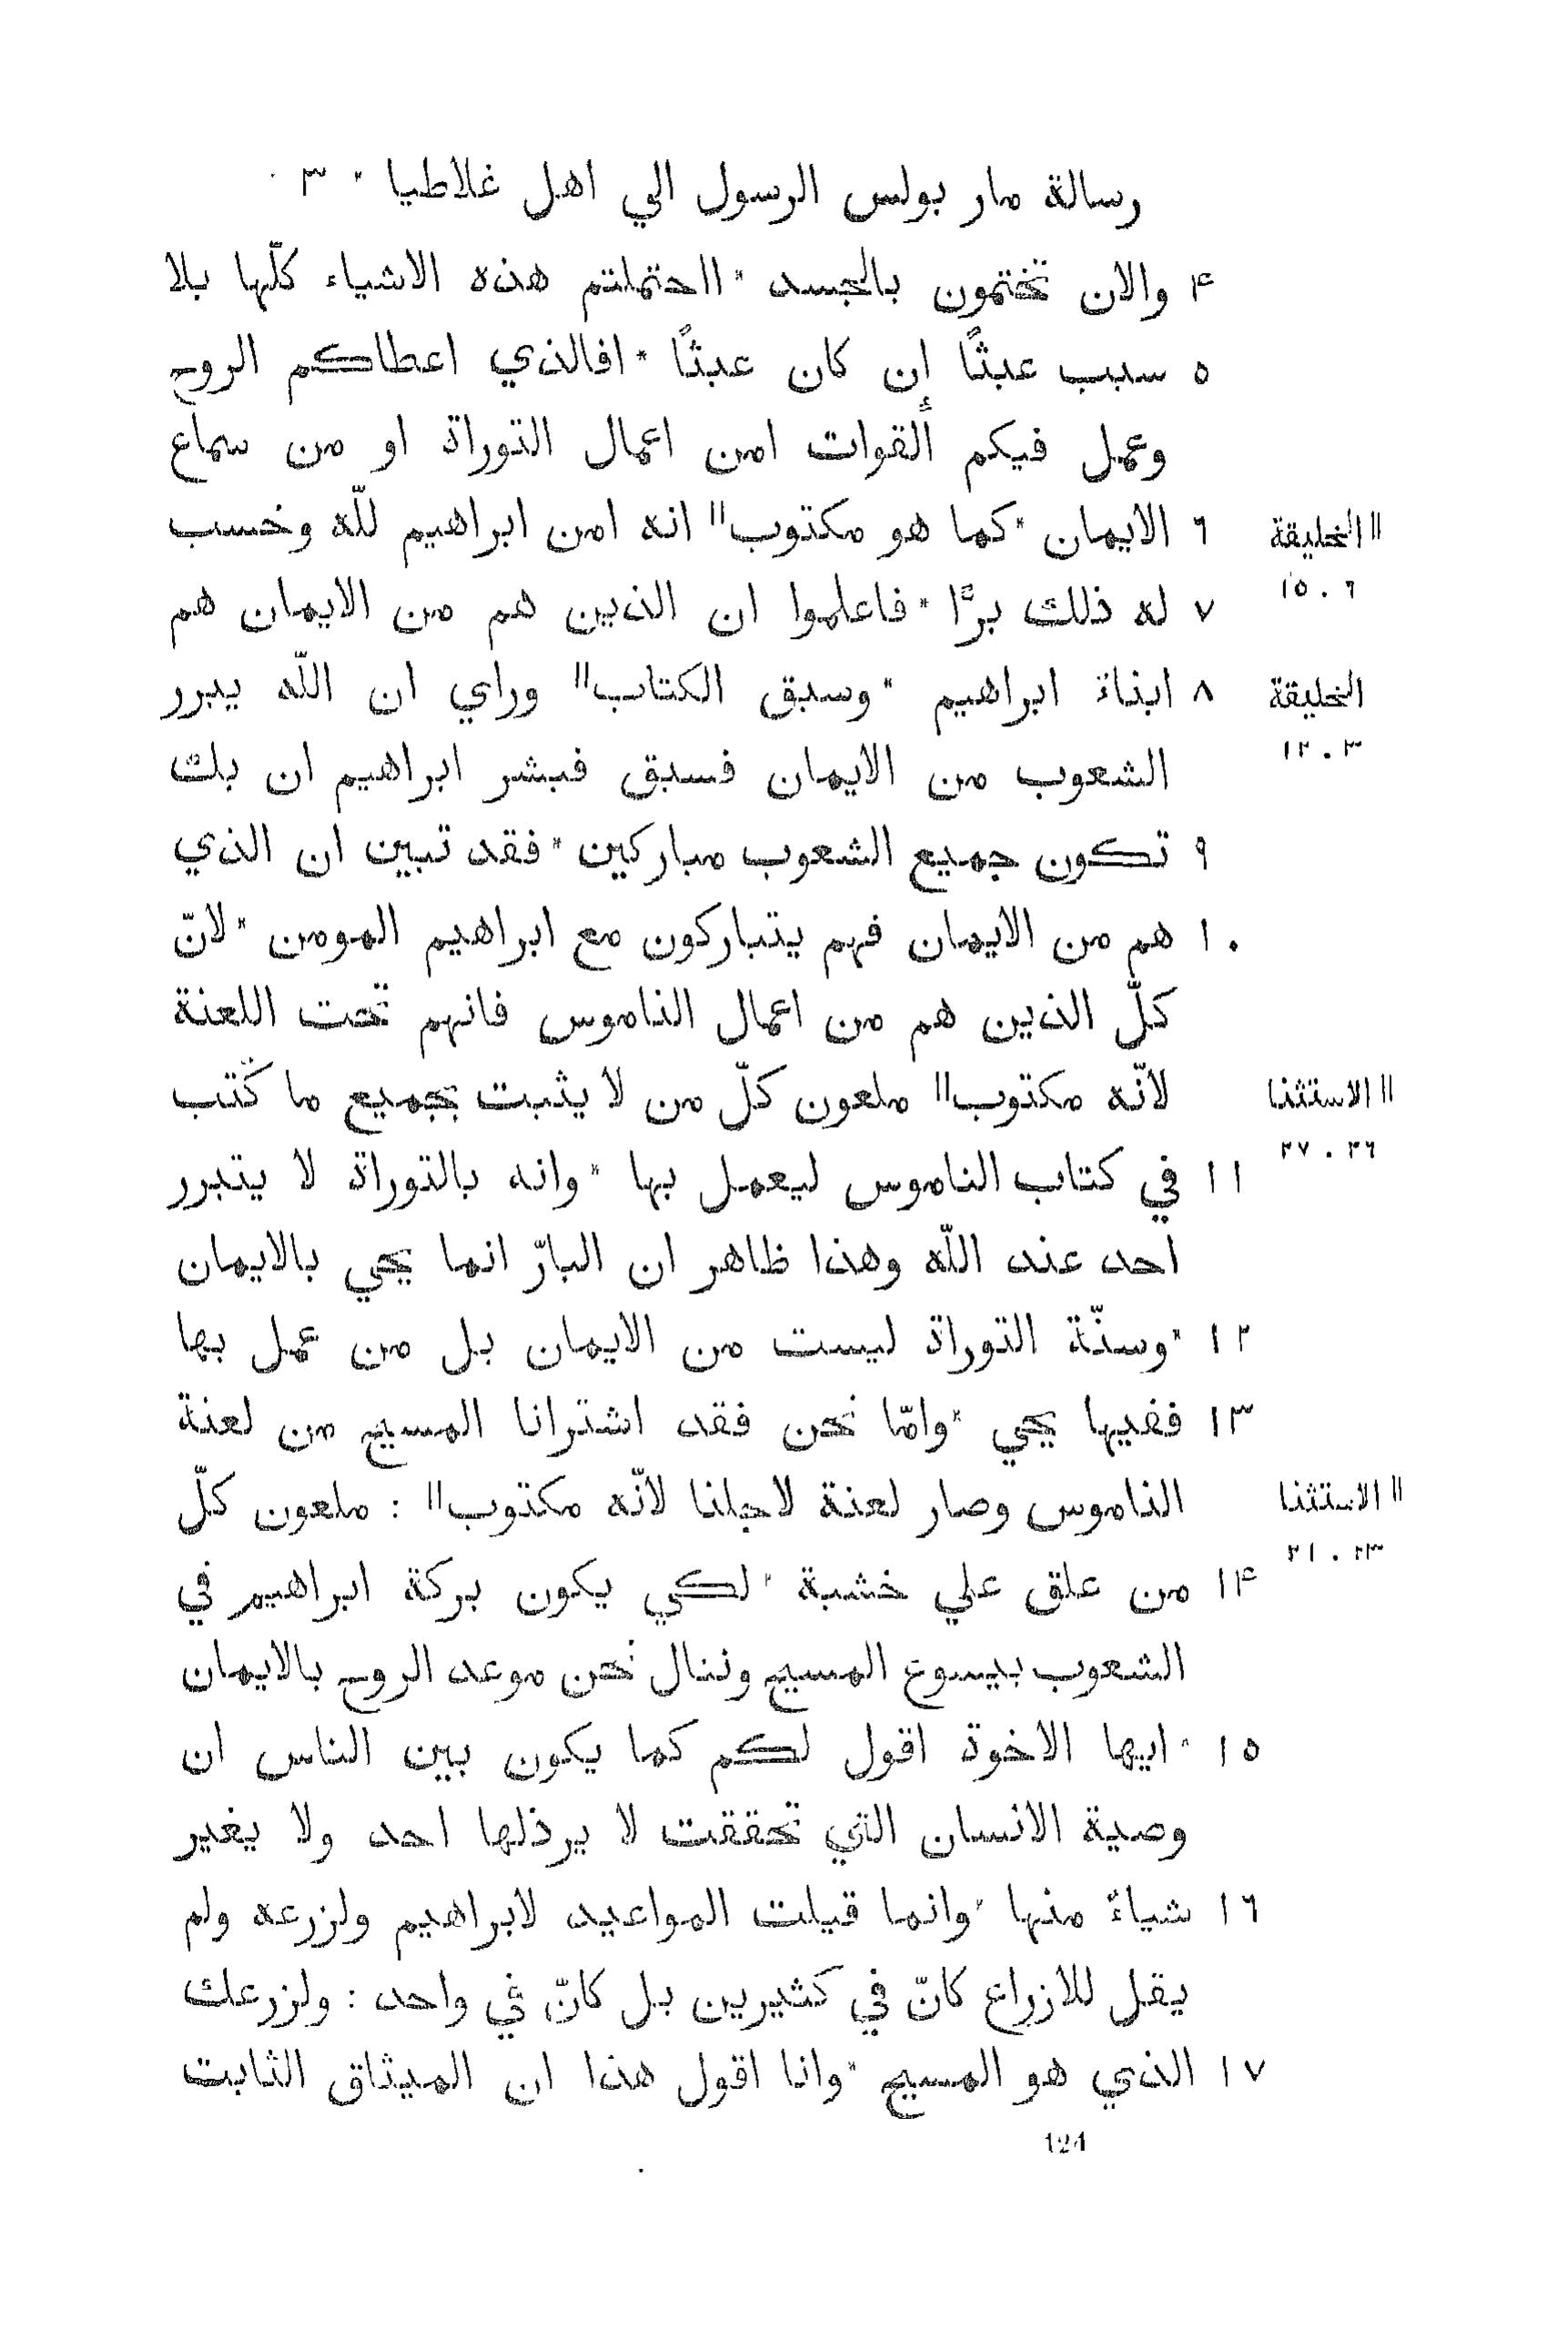 رسالة مار بولس الرسول الي اهل غلاطيا * ٣
٤ والان تختمون بالجسد * ااحتملتم هذه الاشياء كلّها بلا
٥ سبب عبثًا إن كان عبثًا * افالذي اعطاكم الروح
وعمل فيكم القوات أمن اعمال التوراة او من سماع
٦ الايمان * كما هو مكتوب || انه امن ابراهيم للّه وخسب
|| الخليقة
١٥ . ٦
٧ له ذلك برًّا * فاعلموا ان الذين هم من الايمان هم
٨ ابناة ابراهيم * وسبق الكتاب || وراي ان اللّه يبرر
الخليقة
١٢ . ٣
الشعوب من الايمان فسبق فبشر ابراهيم ان بك
٩ تكون جميع الشعوب مباركين * فقد تبين ان الذي
١٠ هم من الايمان فهم يتباركون مع ابراهيم المومن * لانّ
كلّ الذين هم من اعمال الناموس فانهم تحت اللعنة
لانّه مكتوب || ملعون كلّ من لا يثبت بجميع ما كُتب
|| الاستثنا
٢٧ . ٢٦
١١ في كتاب الناموس ليعمل بها * وانه بالتوراة لا يتبرر
احد عند اللّه وهذا ظاهر ان البارّ انما يحيي بالايمان
١٢ * وسنّة التوراة ليست من الايمان بل من عمل بها
١٣ ففيها يحيي * وامّا نحن فقد اشترانا المسيح من لعنة
الناموس وصار لعنة لاجلنا لانّه مكتوب || : ملعون كلّ
|| الاستثنا
٢١ . ٢٣
١٤ من علق علي خشبة * لكي يكون بركة ابراهيم في
الشعوب بيسوع المسيح وننال نحن موعد الروح بالايمان
١٥ * ايها الاخوة اقول لكم كما يكون بين الناس ان
وصية الانسان التي تحققت لا يرذلها احد ولا يغير
١٦ شياءً منها * وانما قيلت المواعيد لابراهيم ولزرعه ولم
يقل للازراع كانّ في كثيرين بل كانّ في واحد : ولزرعك
١٧ الذي هو المسيح * وانا اقول هذا ان الميثاق الثابت
124